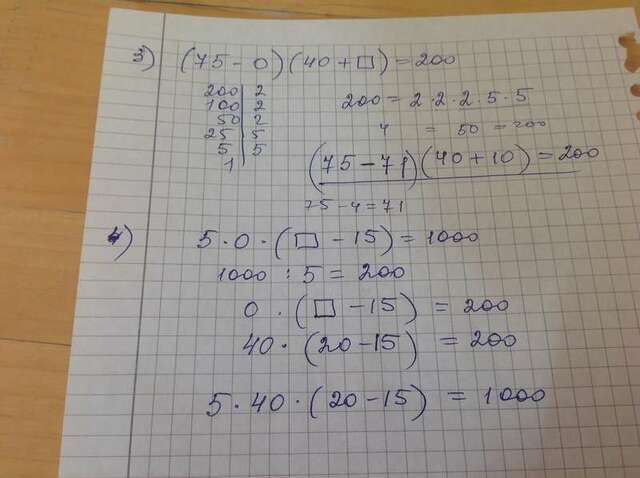 3) (75 - 0)(40 + □) = 200
200 | 2
100 | 2
50 | 2
25 | 5
5 | 5
1
200 = 2 · 2 · 2 · 5 · 5
4 = 50 = 200
(75 - 71)(40 + 10) = 200
75 - 4 = 71
4) 5 · 0 · (□ - 15) = 1000
1000 : 5 = 200
0 · (□ - 15) = 200
40 · (20 - 15) = 200
5 · 40 · (20 - 15) = 1000